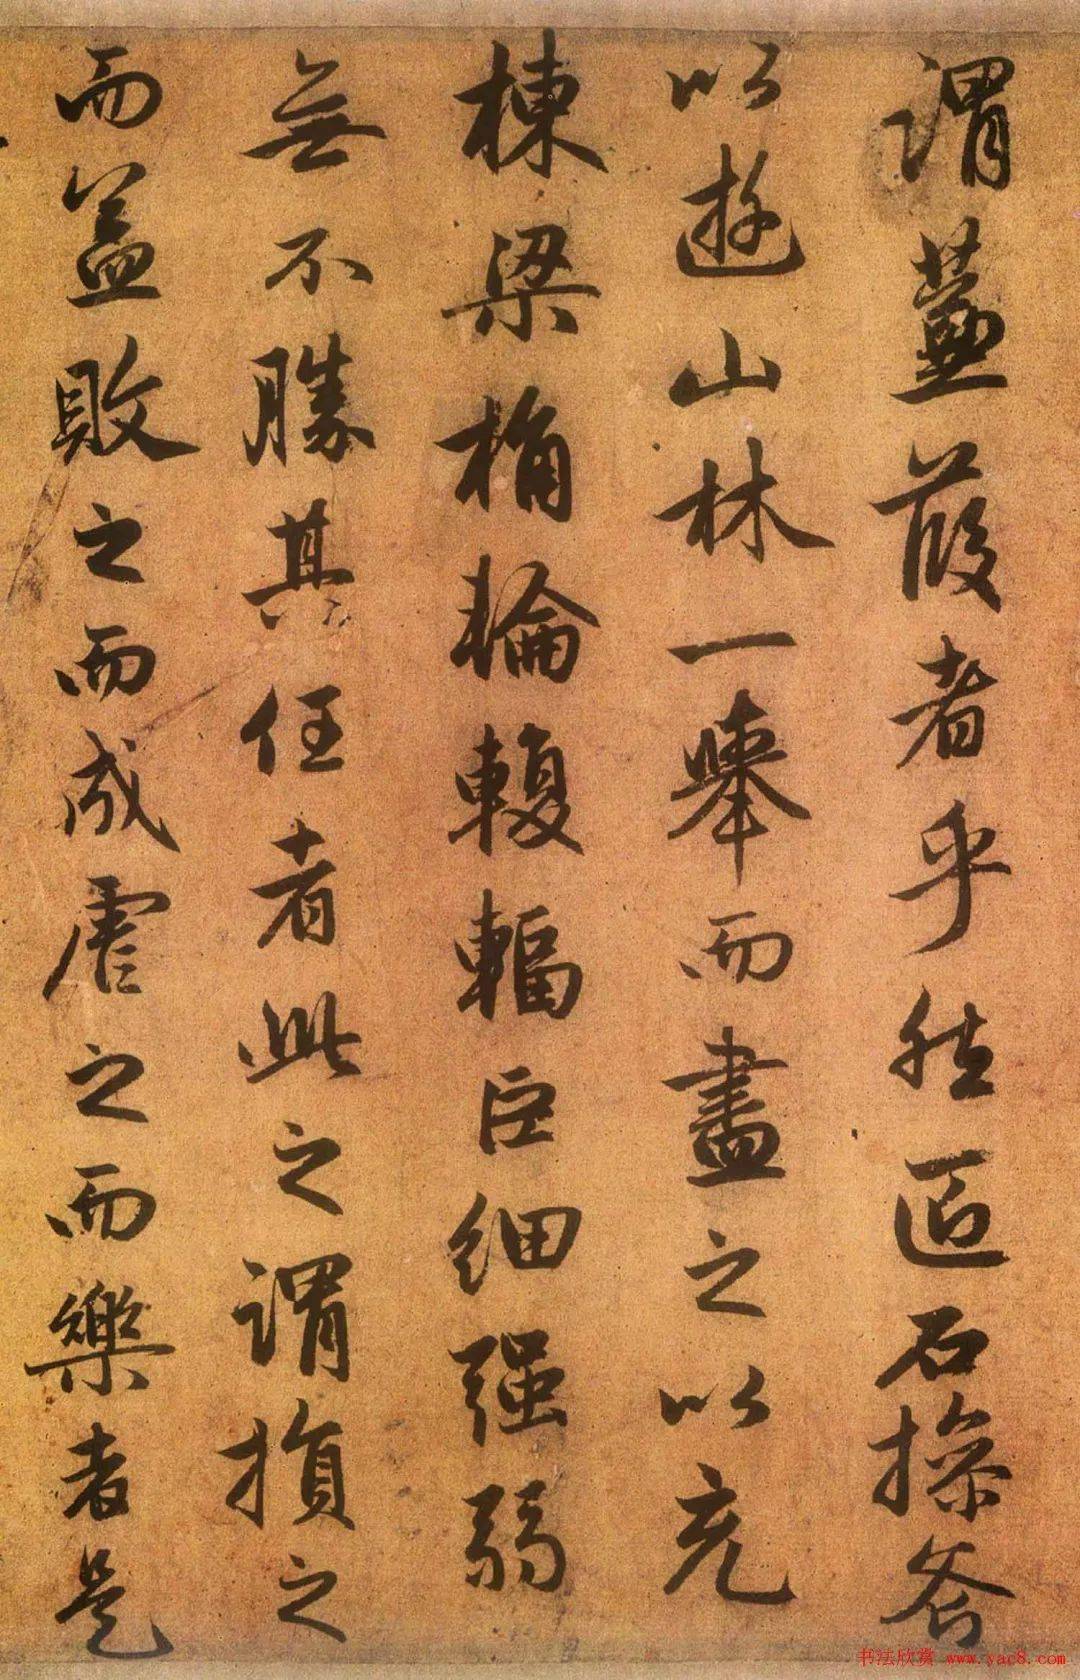 謂蒹葭者乎然匠石操斧
以遊山林一舉而盡之以充
棟梁桷輪輹輻巨細强弱
無不勝其任者此之謂損之
而益敗之而成虐之而樂者是
书法欣赏 www.yac8.com